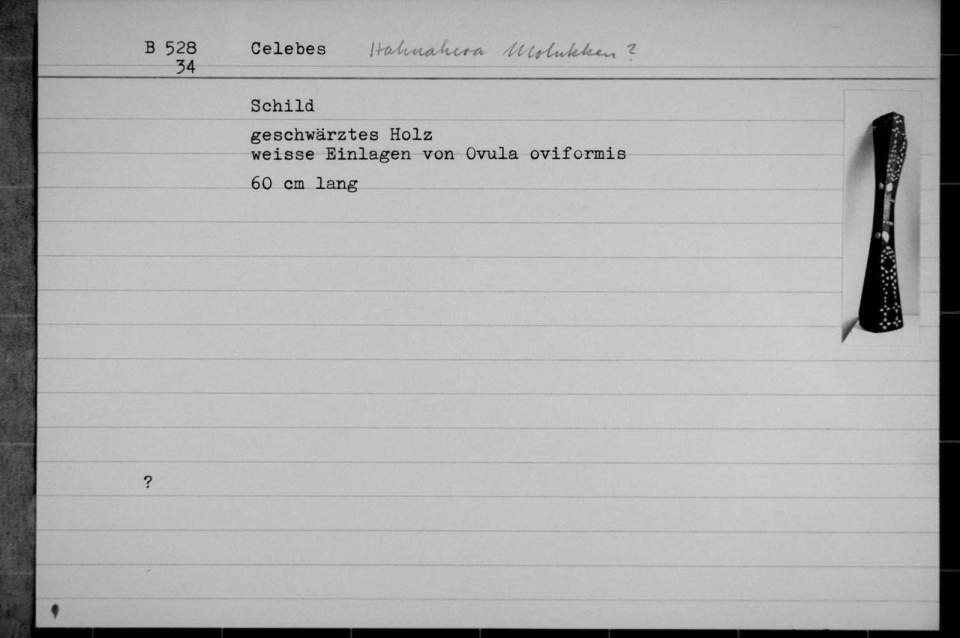 B 528 Celebes Halmahera Molukken?
34
Schild
geschwärztes Holz
weisse Einlagen von Ovula oviformis
60 cm lang
?